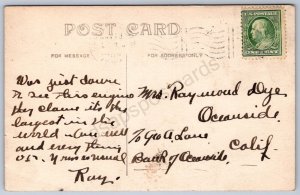 POST CARD
FOR MESSAGE
FOR ADDRESS ONLY
Was just down
to see this engine
they claim its the
largest in the
world. Am well
and every thing
O.K. Yours as usual
Ray.
Mrs. Raymond Dye
Oceanside
Calif.
Bank of Oceanside